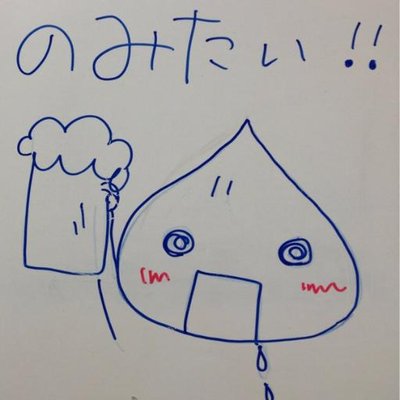 のみたい!!